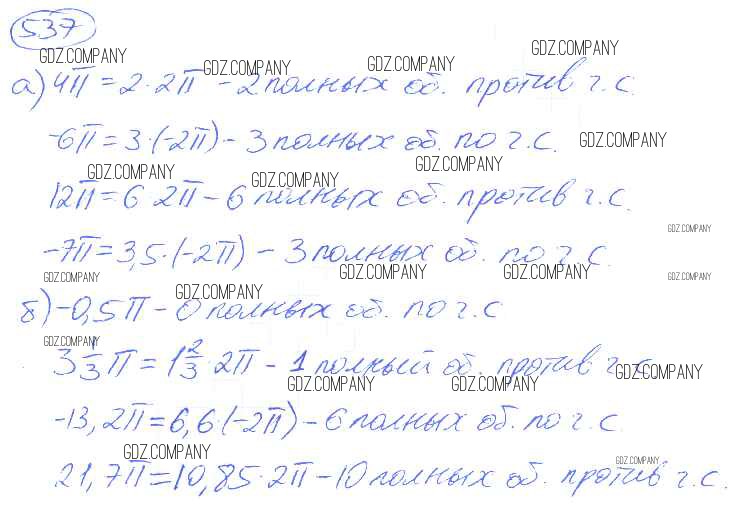 537
GDZ.COMPANY GDZ.COMPANY GDZ.COMPANY GDZ.COMPANY
а) 4π = 2·2π - 2 полных об. против ч.с.
-6π = 3·(-2π) - 3 полных об. по ч.с. GDZ.COMPANY
GDZ.COMPANY GDZ.COMPANY GDZ.COMPANY
12π = 6 2π - 6 полных об. против ч.с.
GDZ.COMPANY
-7π = 3,5·(-2π) - 3 полных об. по ч.с.
GDZ.COMPANY GDZ.COMPANY GDZ.COMPANY GDZ.COMPANY GDZ.COMPANY
б) -0,5π - 0 полных об. по ч.с
GDZ.COMPANY
3 1/3 π = 1 2/3·2π - 1 полный об. против ч.с.
GDZ.COMPANY GDZ.COMPANY GDZ.COMPANY
-13,2π = 6,6·(-2π) - 6 полных об. по ч.с.
GDZ.COMPANY GDZ.COMPANY
21,7π = 10,85·2π - 10 полных об. против ч.с.